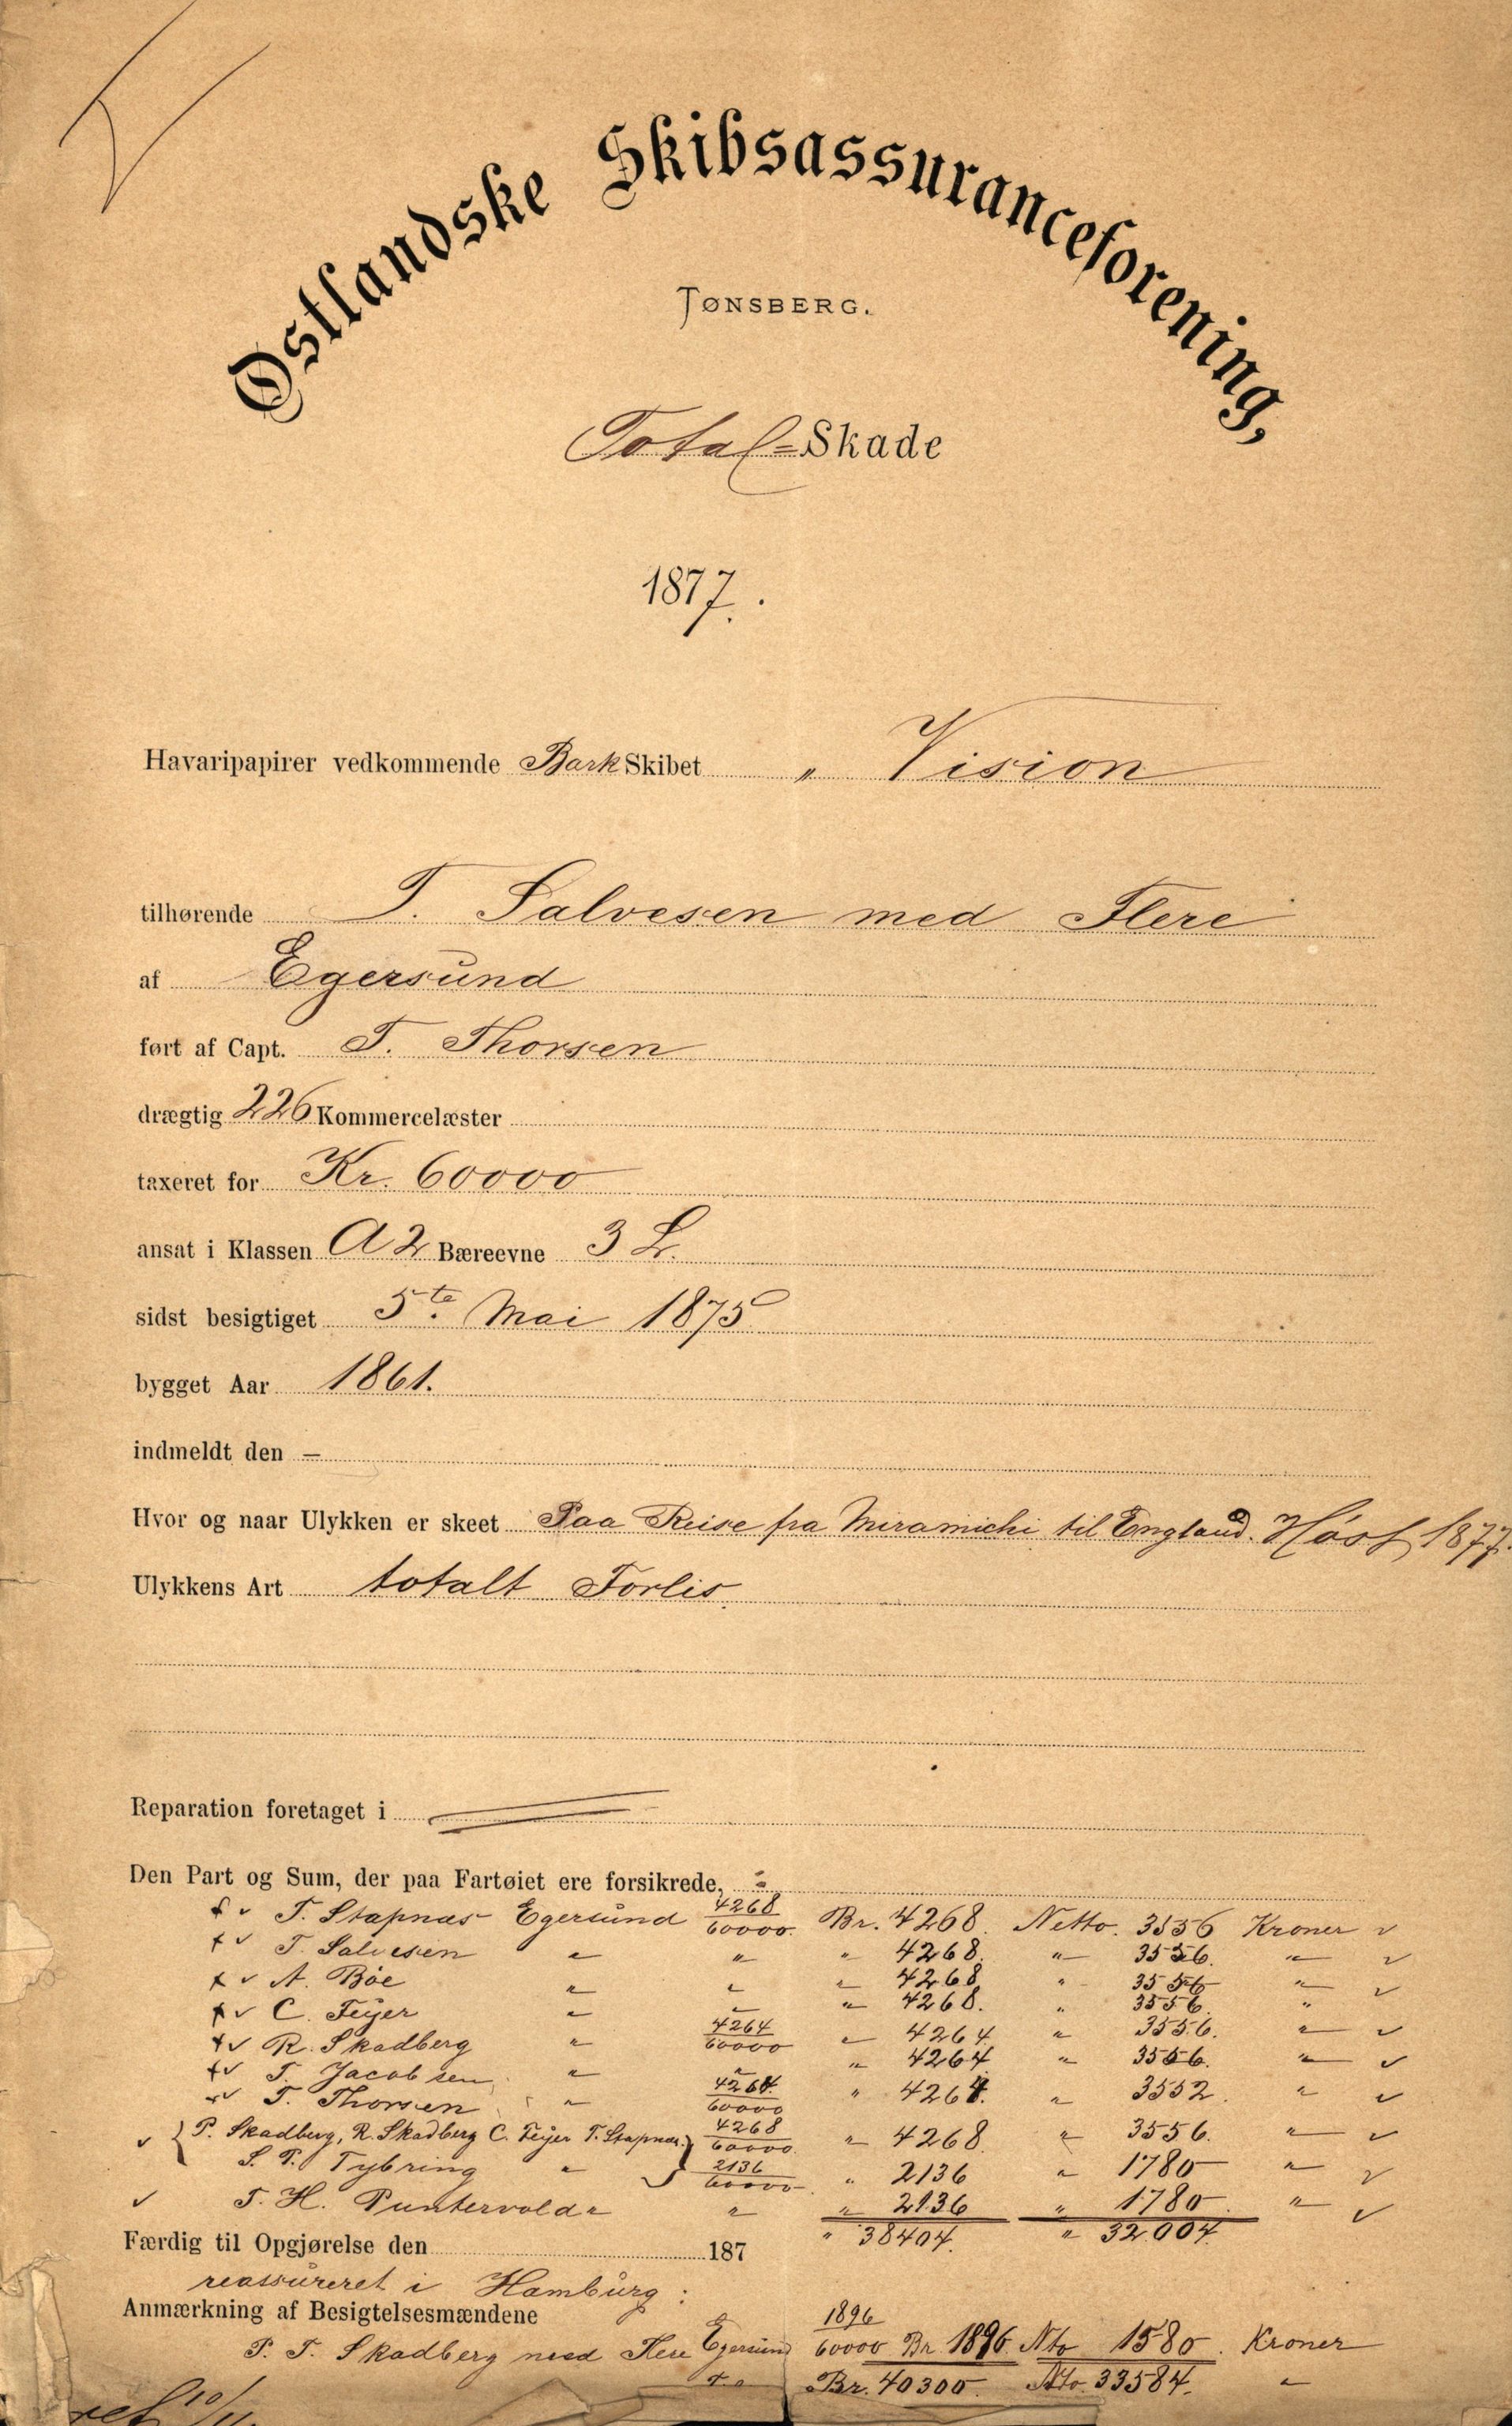 Østlandske Skibsassuranceforening,
TØNSBERG.
Total=Skade
1877.
Havaripapirer vedkommende Bark Skibet „ Vision
tilhørende T. Salvesen med Flere
af Egersund
ført af Capt. T. Thorsen
drægtig 226 Kommercelæster
taxeret for Kr. 60000
ansat i Klassen A2 Bæreevne 3 L.
sidst besigtiget 5te Mai 1875
bygget Aar 1861.
indmeldt den —
Hvor og naar Ulykken er skeet Paa Reise fra Miramichi til England. Høst 1877.
Ulykkens Art totalt Forlis.
Reparation foretaget i
Den Part og Sum, der paa Fartøiet ere forsikrede, :
T. Stapnæs Egersund 4268/60000. Br. 4268. Netto. 3556 Kroner ✓
T. Salvesen " " " 4268. " 3556. " ✓
A. Böe " " " 4268 " 3556 " ✓
C. Feyer " " " 4268. " 3556. "
R. Skadberg " 4264/60000 " 4264 " 3556. " ✓
T. Jacobsen " " " 4264 " 3556. " ✓
T. Thorsen " 4264/60000 " 4264. " 3552. " ✓
✓ { P. Skadberg, R. Skadberg C. Feyer T. Stapnæs } 4268/60000. " 4268. " 3556. " ✓
S. P. Tybring " 2136/60000 " 2136 " 1780 " ✓
✓ T. H. Puntervold " " " 2136 " 1780. " ✓
" 38404. " 32004.
Færdig til Opgjørelse den 187
reassureret i Hamburg :
Anmærkning af Besigtelsesmændene
P. T. Skadberg med Flere Egersund 1896/60000 Br 1896. Nto 1580. Kroner
Br. 40300. Nto. 33584. "
10/11